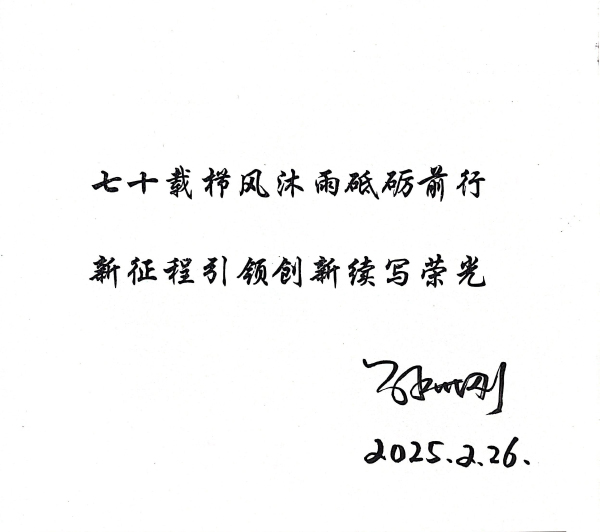 七十载栉风沐雨砥砺前行
新征程引领创新续写荣光
2025.2.26.